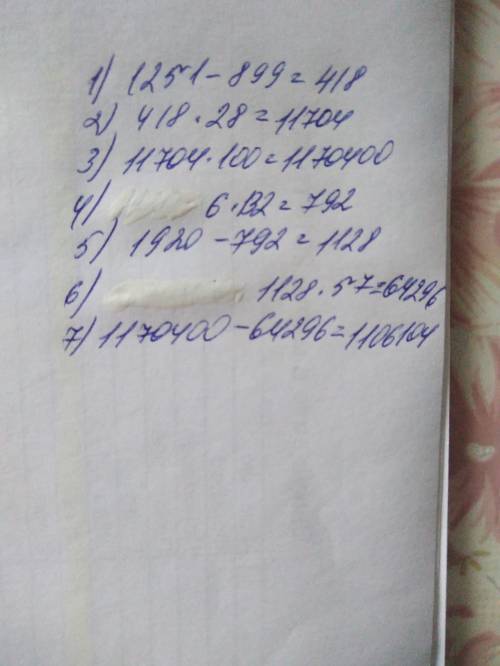 1) 1251 - 899 = 418
2) 418 · 28 = 11704
3) 11704 · 100 = 1170400
4) 6 · 132 = 792
5) 1920 - 792 = 1128
6) 1128 · 57 = 64296
7) 1170400 - 64296 = 1106104